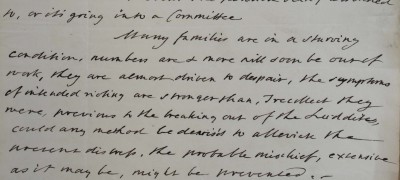 to, or its going into a Committee
Many families are in a starving
condition, numbers are & more will soon be out of
work, they are almost driven to despair, the symptoms
of intended rioting are stronger than, I recollect they
were, previous to the breaking out of the Luddites,
could any method be devised to alleviate the
present distress, the probable mischief, extensive
as it may be, might be prevented. –